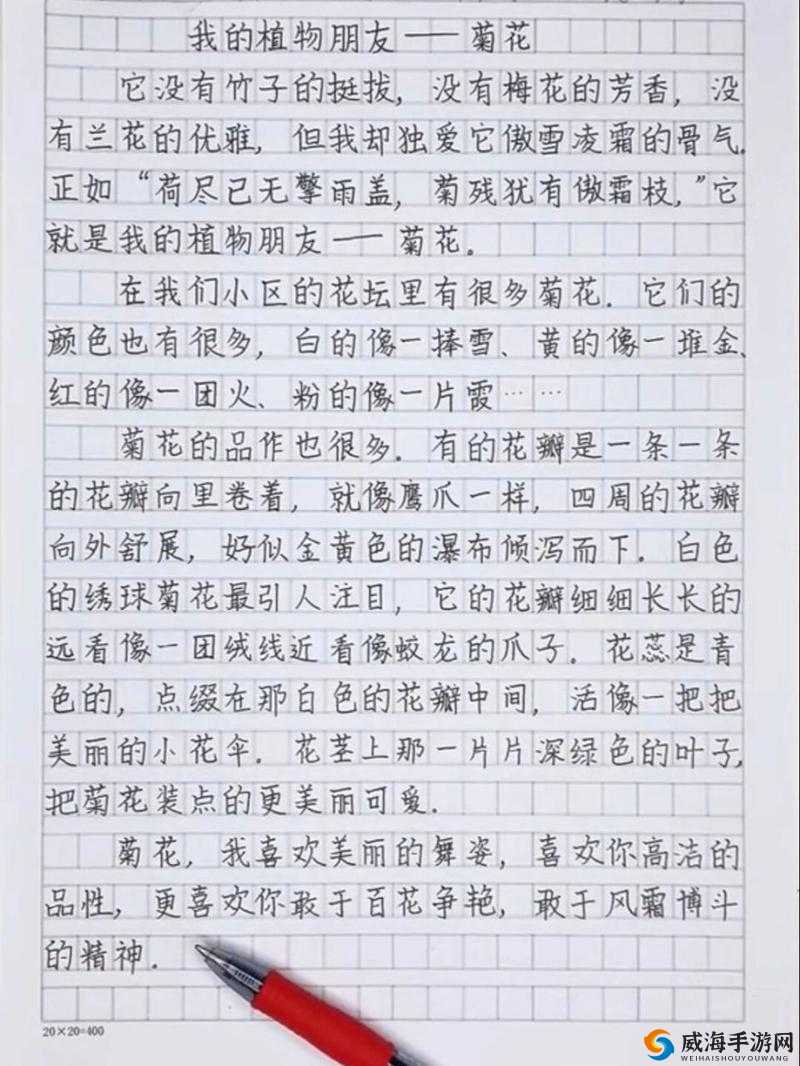 我的植物朋友——菊花
它没有竹子的挺拔，没有梅花的芳香，没
有兰花的优雅，但我却独爱它傲雪凌霜的骨气.
正如“荷尽已无擎雨盖，菊残犹有傲霜枝，”它
就是我的植物朋友——菊花。
在我们小区的花坛里有很多菊花．它们的
颜色也有很多，白的像一捧雪、黄的像一堆金、
红的像一团火、粉的像一片霞……
菊花的品作也很多．有的花瓣是一条一条
的花瓣向里卷着，就像鹰爪一样，四周的花瓣
向外舒展，好似金黄色的瀑布倾泻而下．白色
的绣球菊花最引人注目，它的花瓣细细长长的
远看像一团绒线近看像蛟龙的爪子．花蕊是青
色的，点缀在那白色的花瓣中间，活像一把把
美丽的小花伞．花茎上那一片片深绿色的叶子，
把菊花装点的更美丽可爱．
菊花，我喜欢美丽的舞姿，喜欢你高洁的
品性，更喜欢你敢于百花争艳，敢于风霜博斗
的精神．
20×20=400
威海手游网
WEIHAISHOUYOUWANG